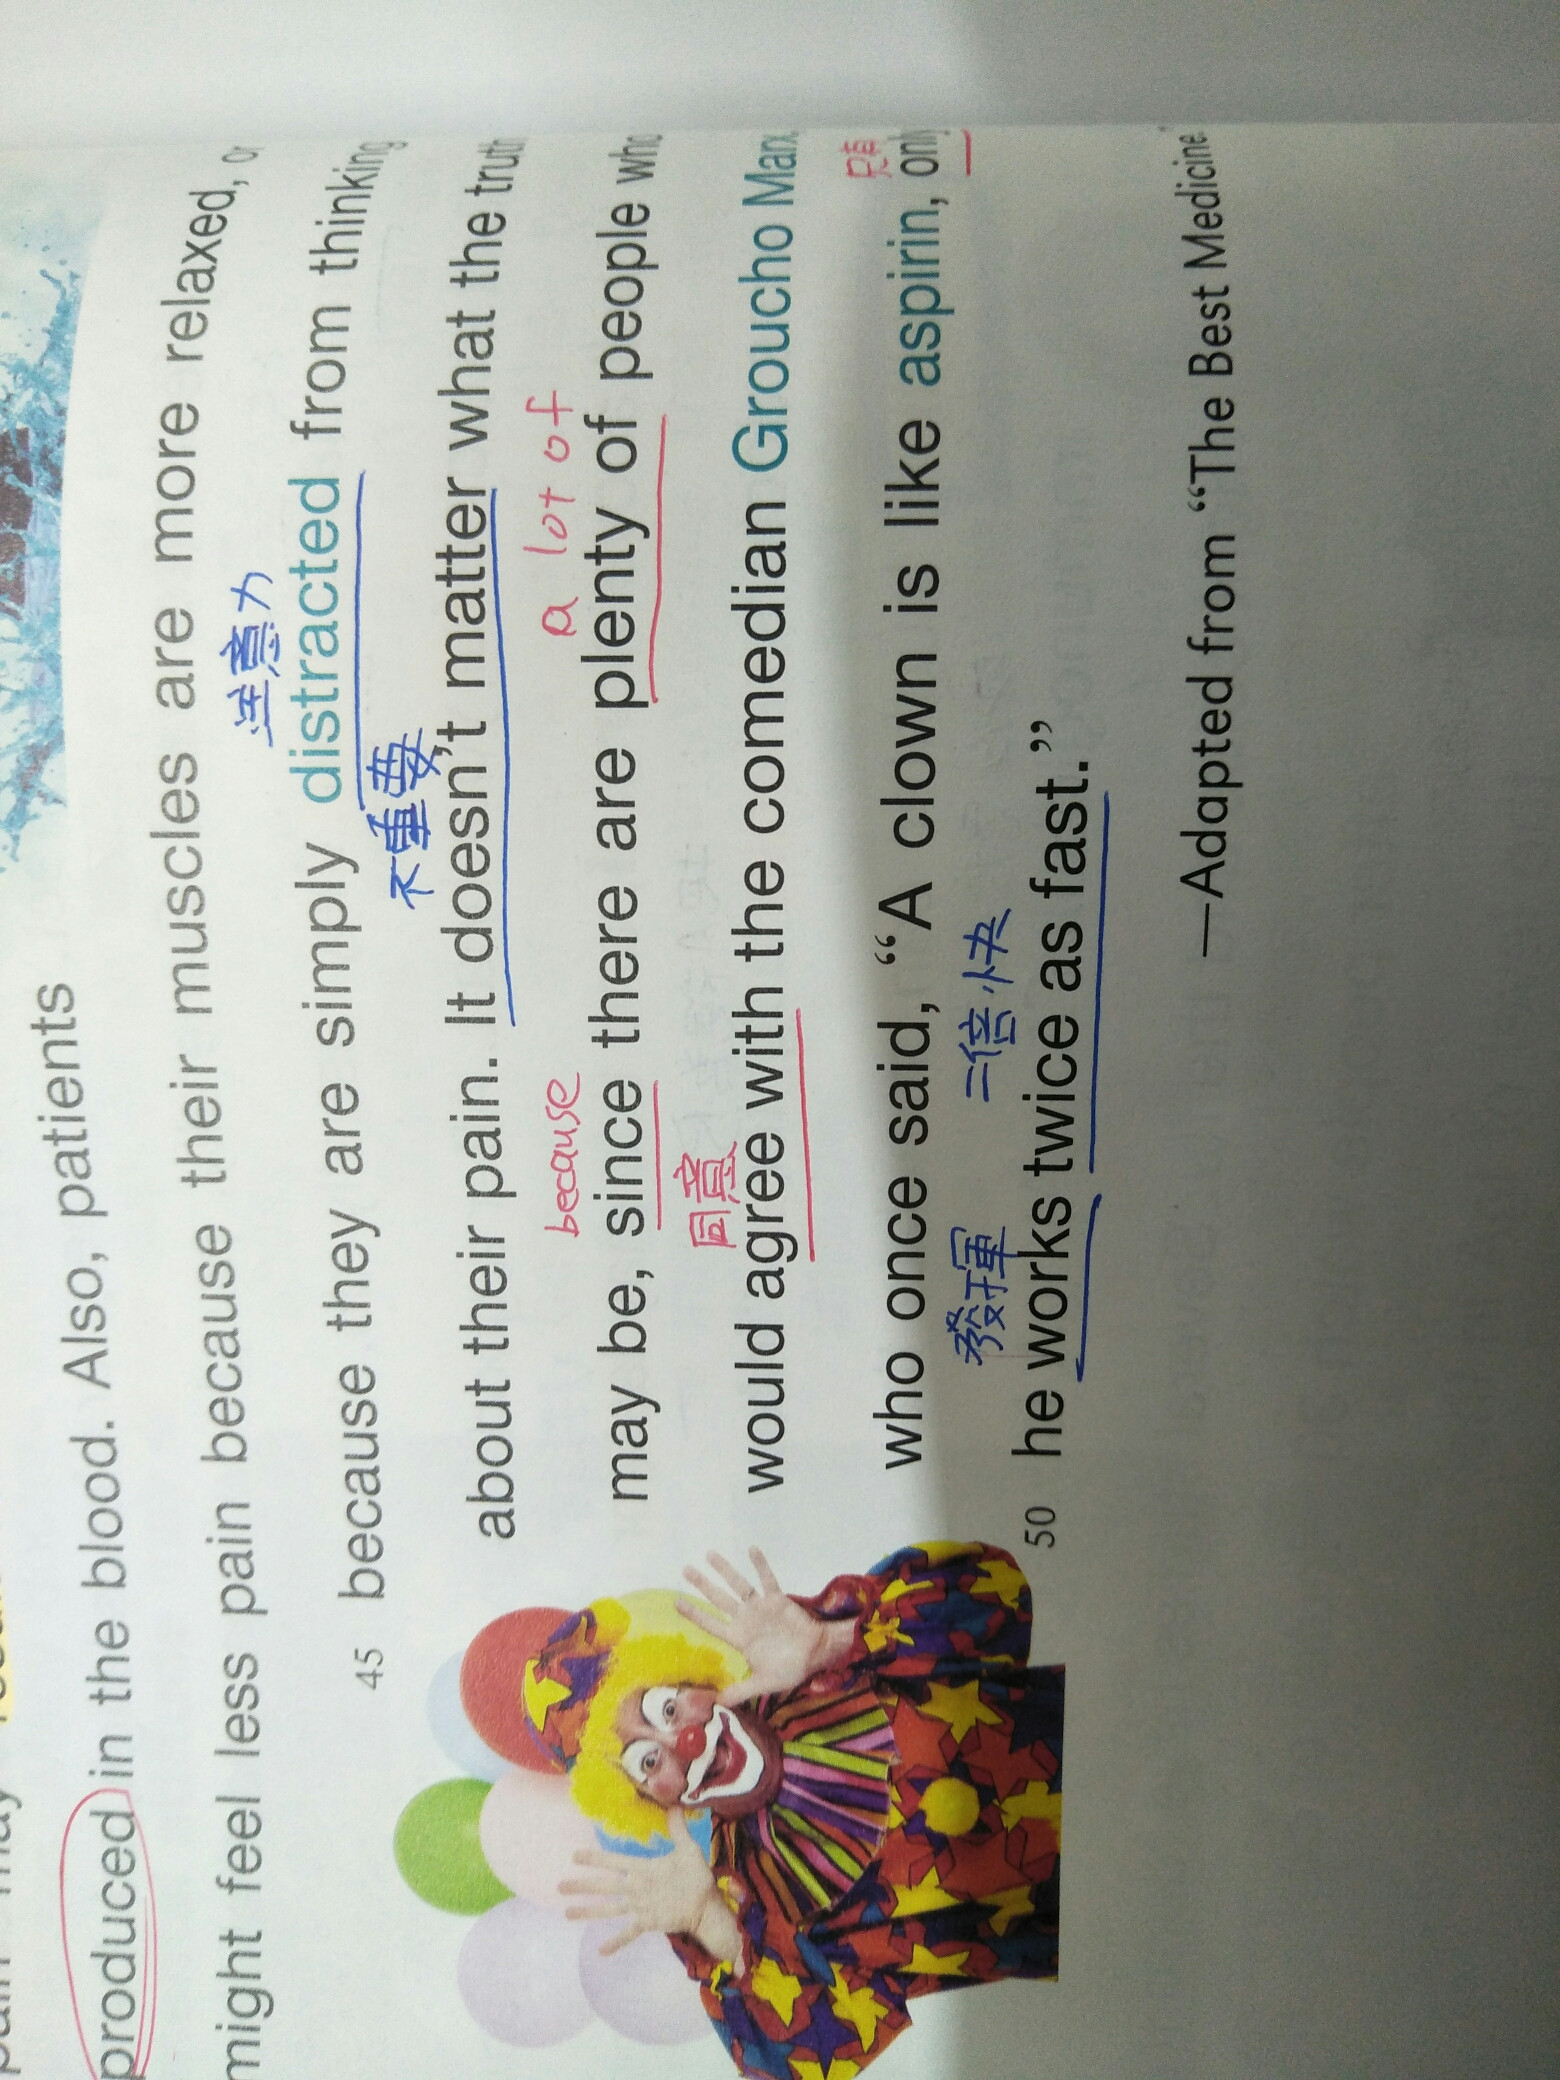 produced in the blood. Also, patients
might feel less pain because their muscles are more relaxed, or
注意力
45 because they are simply distracted from thinking
不重要
about their pain. It doesn't matter what the truth
because a lot of
may be, since there are plenty of people who
同意
would agree with the comedian Groucho Marx,
who once said, “A clown is like aspirin, only
發揮 二倍快
50 he works twice as fast.”
—Adapted from “The Best Medicine”